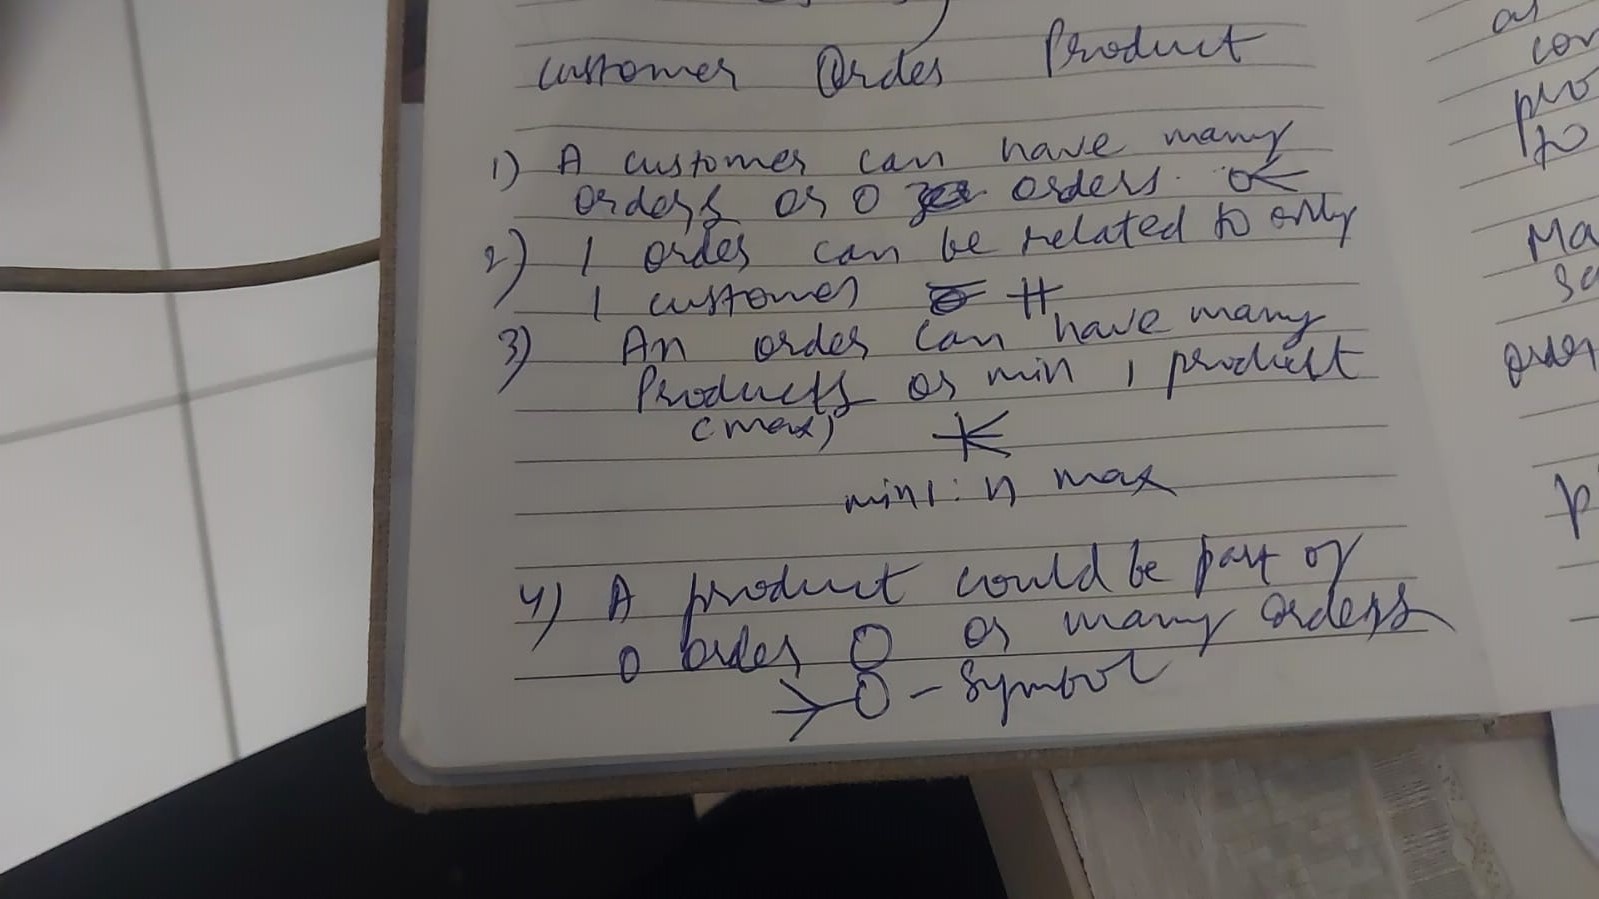 customer Order Product
1) A customer can have many
orders or 0 orders.
2) 1 order can be related to only
1 customer
3) An order can have many
Products or min 1 product
(max)
min 1 : n max
4) A product could be part of
0 order O or many orders
- Symbol
as
con
pro
to
Ma
order
p